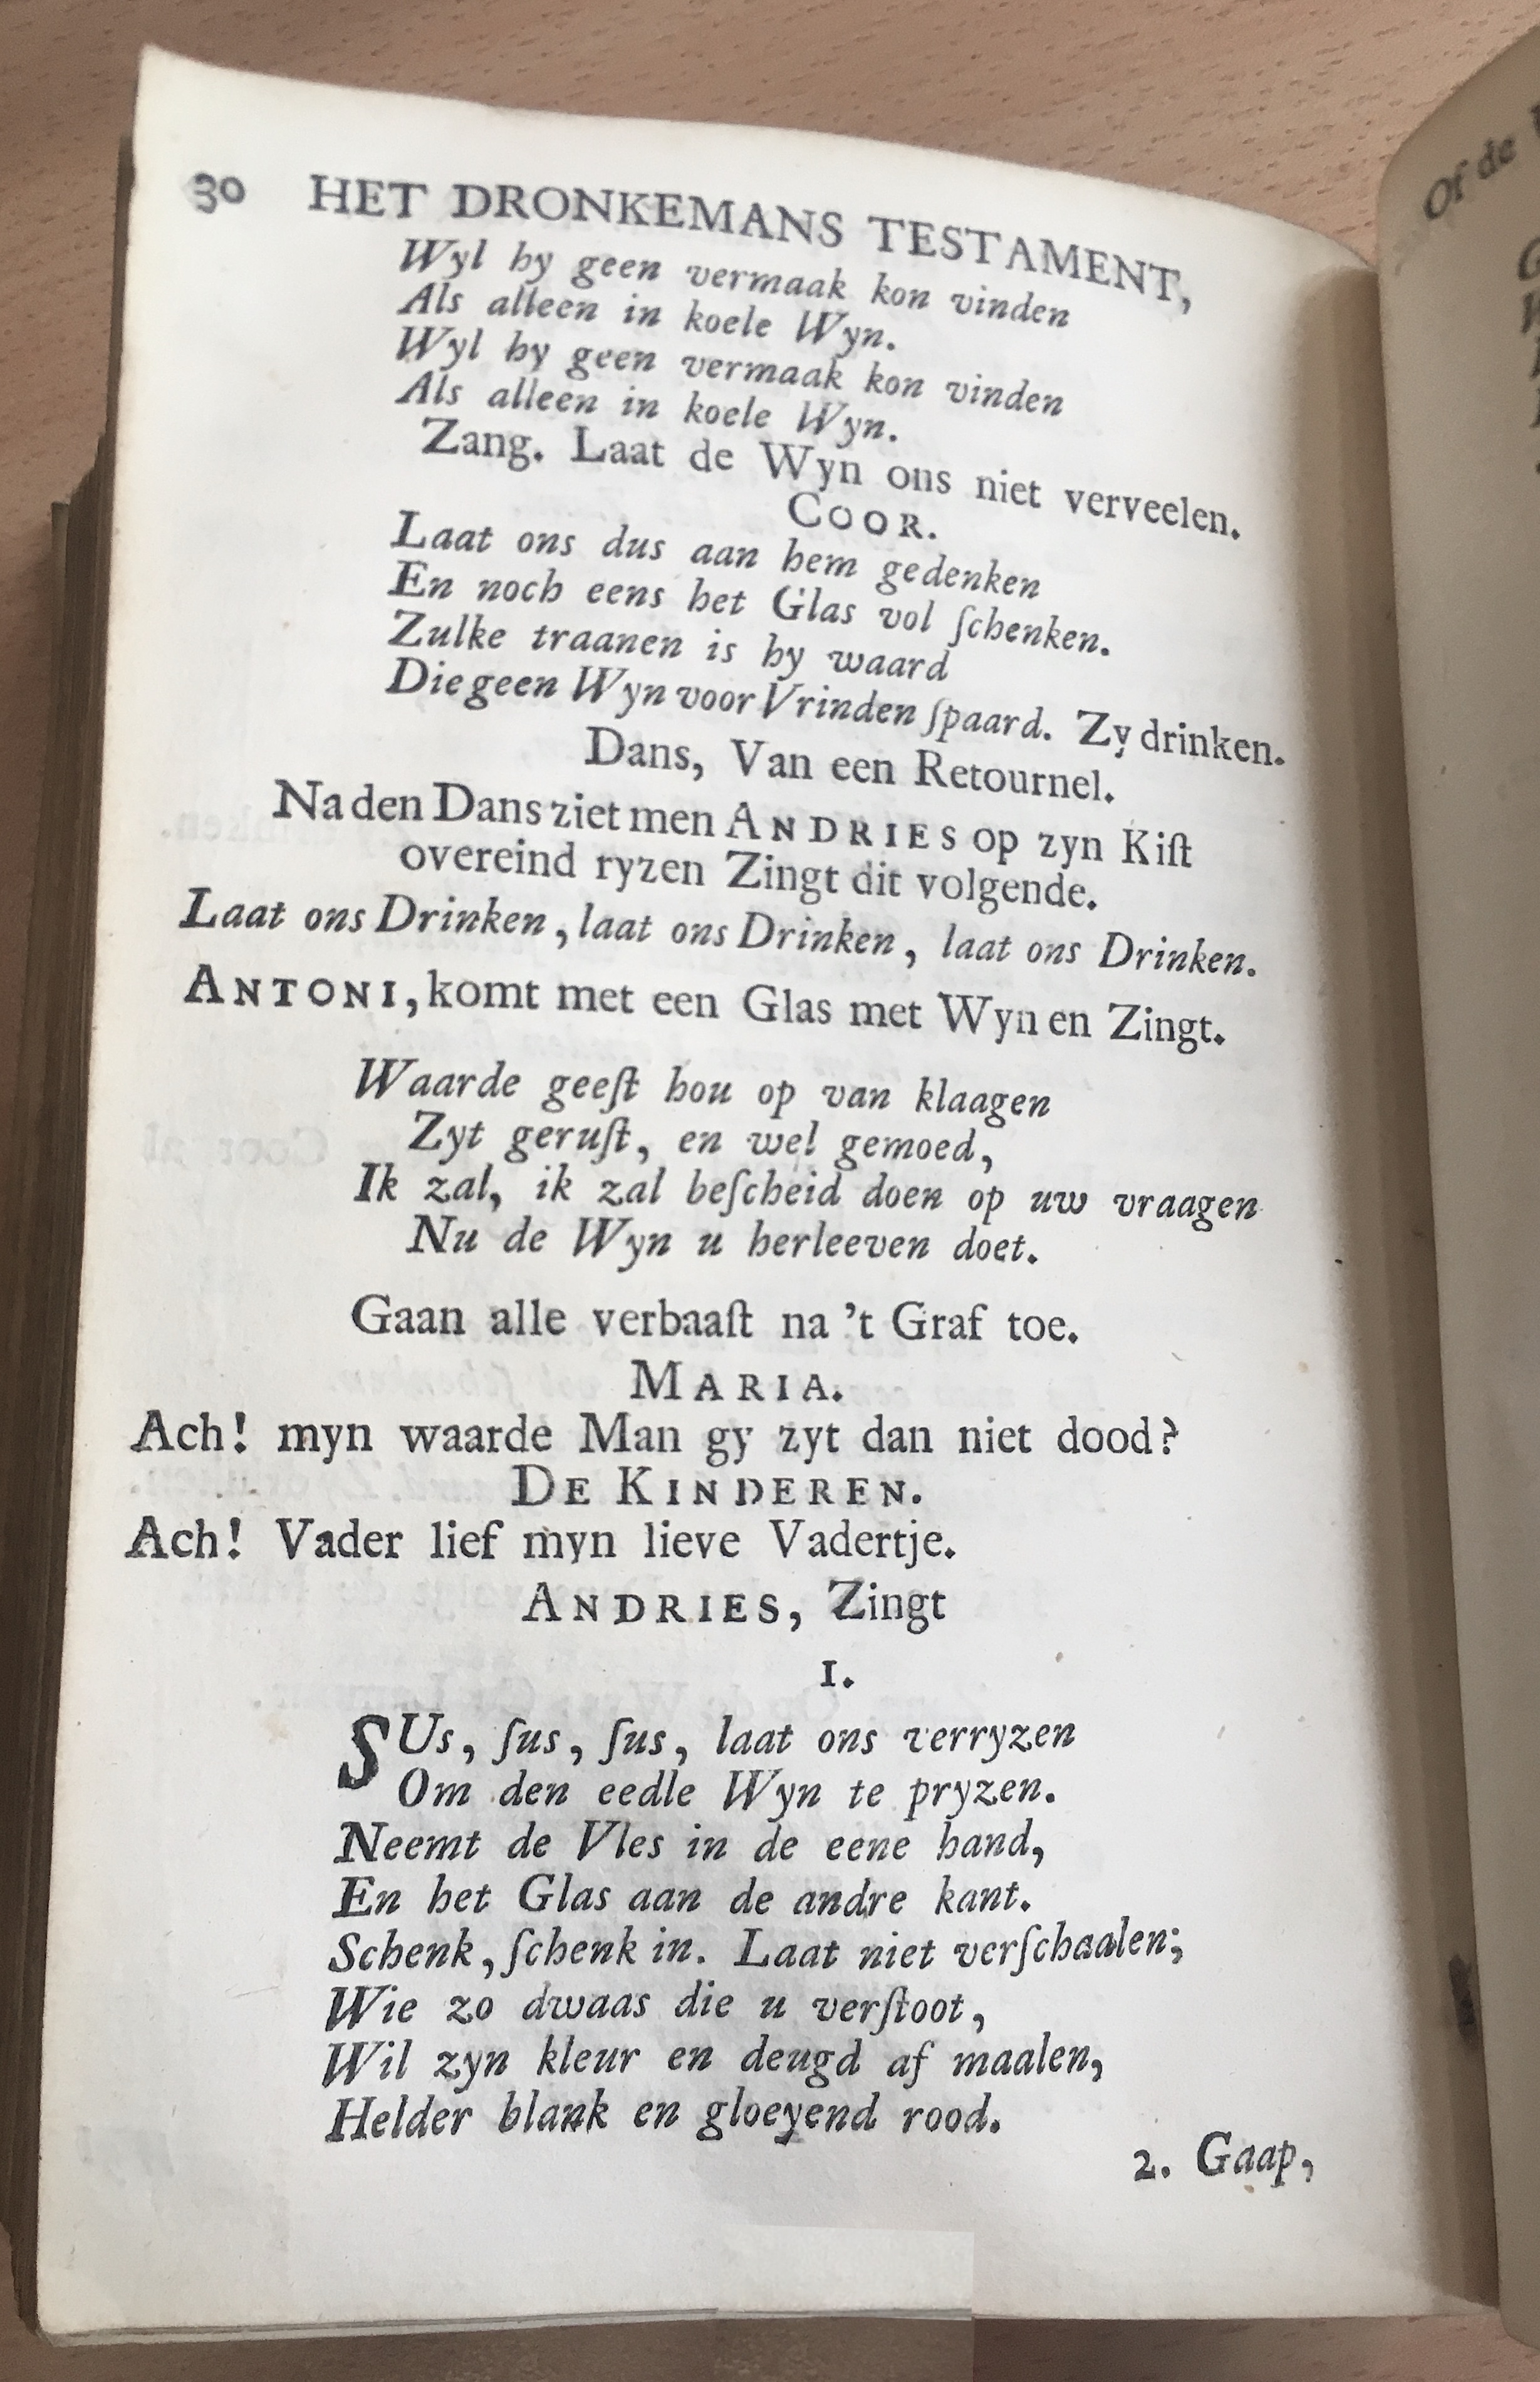 30 HET DRONKEMANS TESTAMENT,
Wyl hy geen vermaak kon vinden
Als alleen in koele Wyn.
Wyl hy geen vermaak kon vinden
Als alleen in koele Wyn.
Zang. Laat de Wyn ons niet verveelen.
COOR.
Laat ons dus aan hem gedenken
En noch eens het Glas vol ſchenken.
Zulke traanen is hy waard
Die geen Wyn voor Vrinden ſpaard. Zy drinken.
Dans, Van een Retournel.
Na den Dans ziet men ANDRIES op zyn Kiſt
overeind ryzen Zingt dit volgende.
Laat ons Drinken, laat ons Drinken, laat ons Drinken.
ANTONI, komt met een Glas met Wyn en Zingt.
Waarde geeſt hou op van klaagen
Zyt geruſt, en wel gemoed,
Ik zal, ik zal beſcheid doen op uw vraagen
Nu de Wyn u herleeven doet.
Gaan alle verbaaſt na 't Graf toe.
MARIA.
Ach! myn waarde Man gy zyt dan niet dood?
DE KINDEREN.
Ach! Vader lief myn lieve Vadertje.
ANDRIES, Zingt
1.
SUs, ſus, ſus, laat ons verryzen
Om den eedle Wyn te pryzen.
Neemt de Vles in de eene hand,
En het Glas aan de andre kant.
Schenk, ſchenk in. Laat niet verſchaalen;
Wie zo dwaas die u verſtoot,
Wil zyn kleur en deugd af maalen,
Helder blank en gloeyend rood.
2. Gaap,
Of de